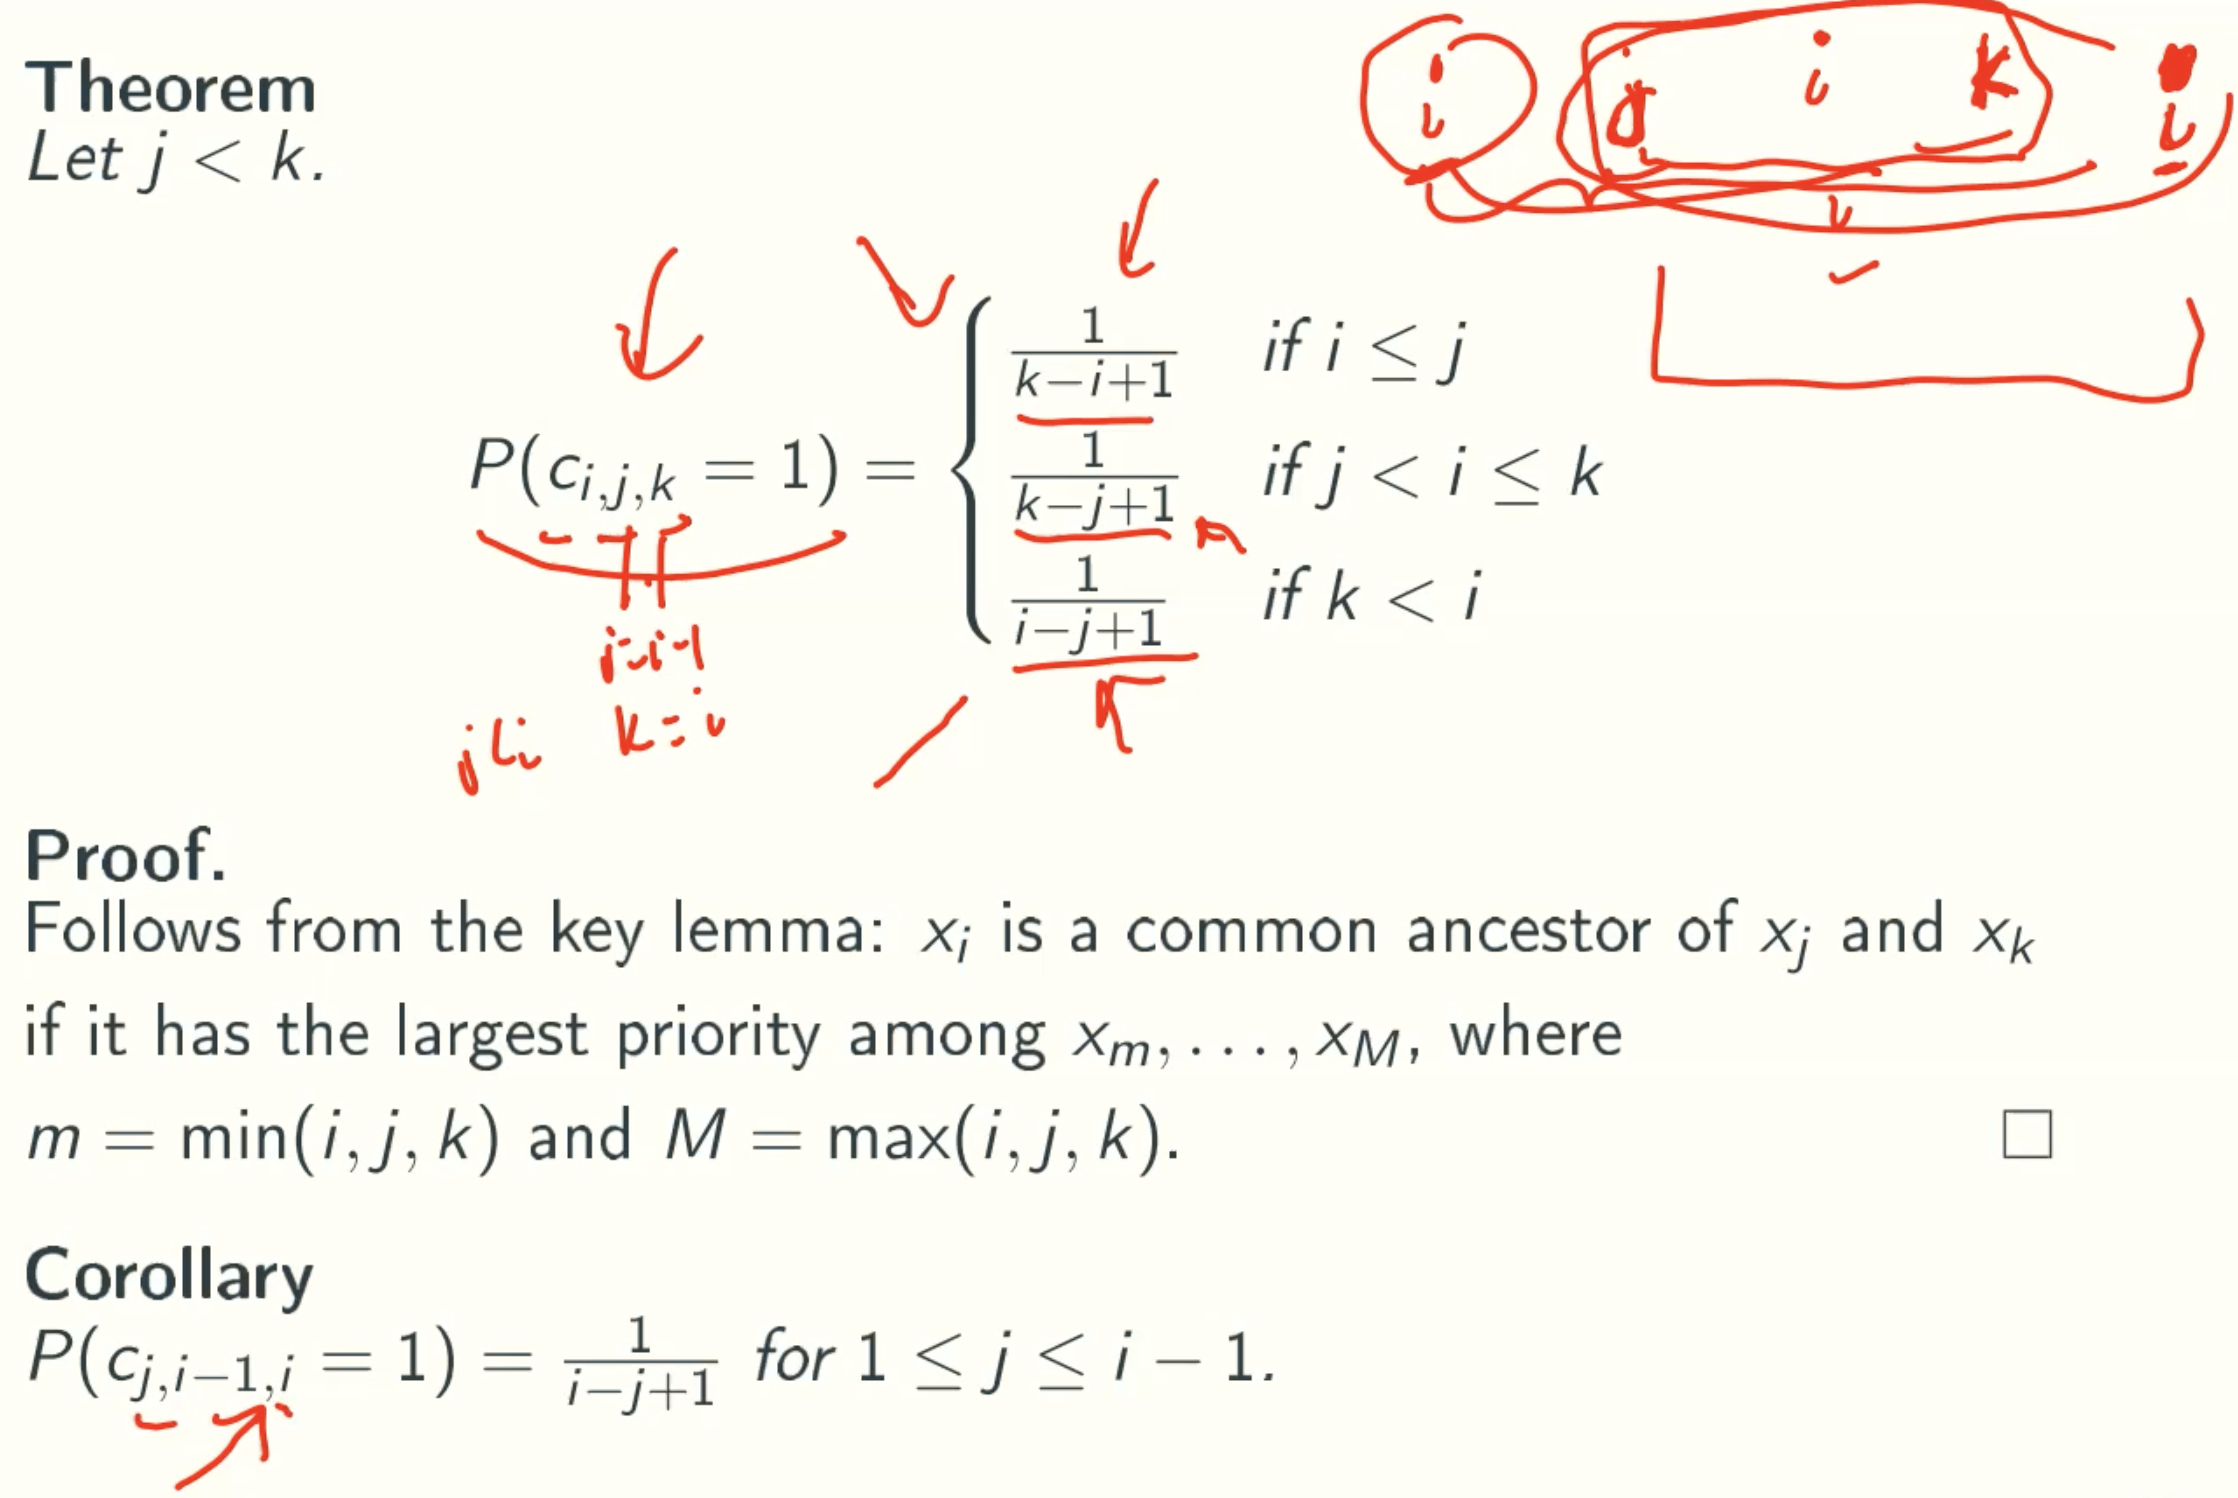 Theorem
Let j < k.
j i k
i i
P(c_{i,j,k} = 1) = { 1/(k−i+1) if i ≤ j
1/(k−j+1) if j < i ≤ k
1/(i−j+1) if k < i
j=i-1
k=i
Proof.
Follows from the key lemma: x_i is a common ancestor of x_j and x_k
if it has the largest priority among x_m, . . . , x_M, where
m = min(i, j, k) and M = max(i, j, k). □
Corollary
P(c_{j,i−1,i} = 1) = 1/(i−j+1) for 1 ≤ j ≤ i − 1.